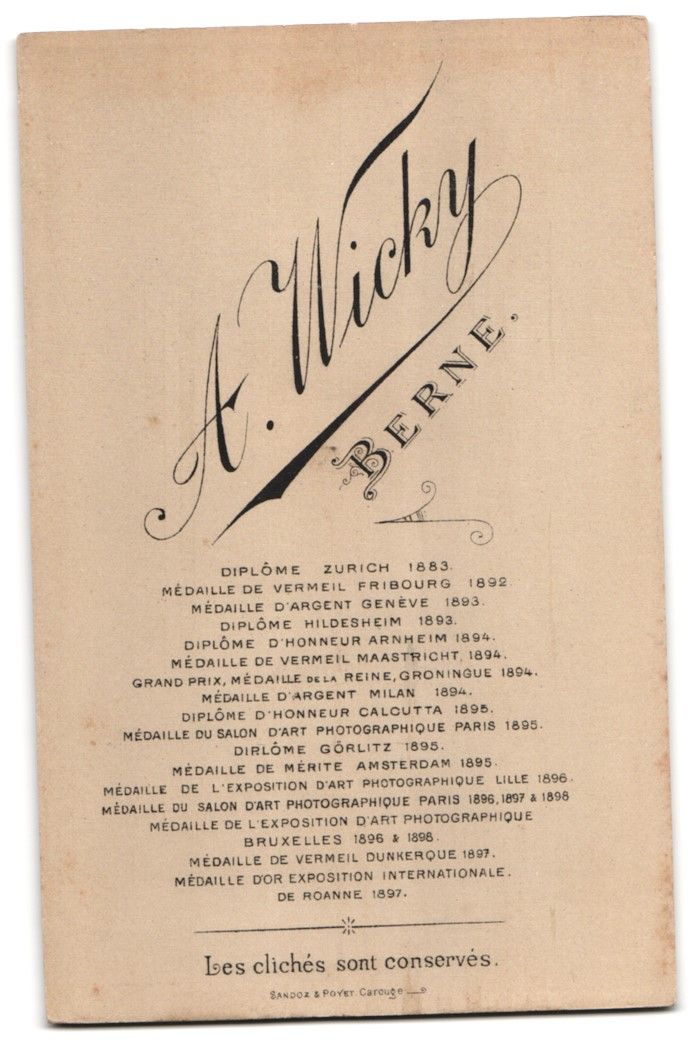 A. Wicky
BERNE.
DIPLÔME ZURICH 1883.
MÉDAILLE DE VERMEIL FRIBOURG 1892
MÉDAILLE D'ARGENT GENÈVE 1893.
DIPLÔME HILDESHEIM 1893.
DIPLÔME D'HONNEUR ARNHEIM 1894.
MÉDAILLE DE VERMEIL MAASTRICHT, 1894.
GRAND PRIX, MÉDAILLE DE LA REINE, GRONINGUE 1894.
MÉDAILLE D'ARGENT MILAN 1894.
DIPLÔME D'HONNEUR CALCUTTA 1895.
MÉDAILLE DU SALON D'ART PHOTOGRAPHIQUE PARIS 1895.
DIRLÔME GÖRLITZ 1895.
MÉDAILLE DE MÉRITE AMSTERDAM 1895.
MÉDAILLE DE L'EXPOSITION D'ART PHOTOGRAPHIQUE LILLE 1896.
MÉDAILLE DU SALON D'ART PHOTOGRAPHIQUE PARIS 1896, 1897 & 1898
MÉDAILLE DE L'EXPOSITION D'ART PHOTOGRAPHIQUE
BRUXELLES 1896 & 1898.
MÉDAILLE DE VERMEIL DUNKERQUE 1897.
MÉDAILLE D'OR EXPOSITION INTERNATIONALE.
DE ROANNE 1897.
Les clichés sont conservés.
SANDOZ & POYET. Carouge